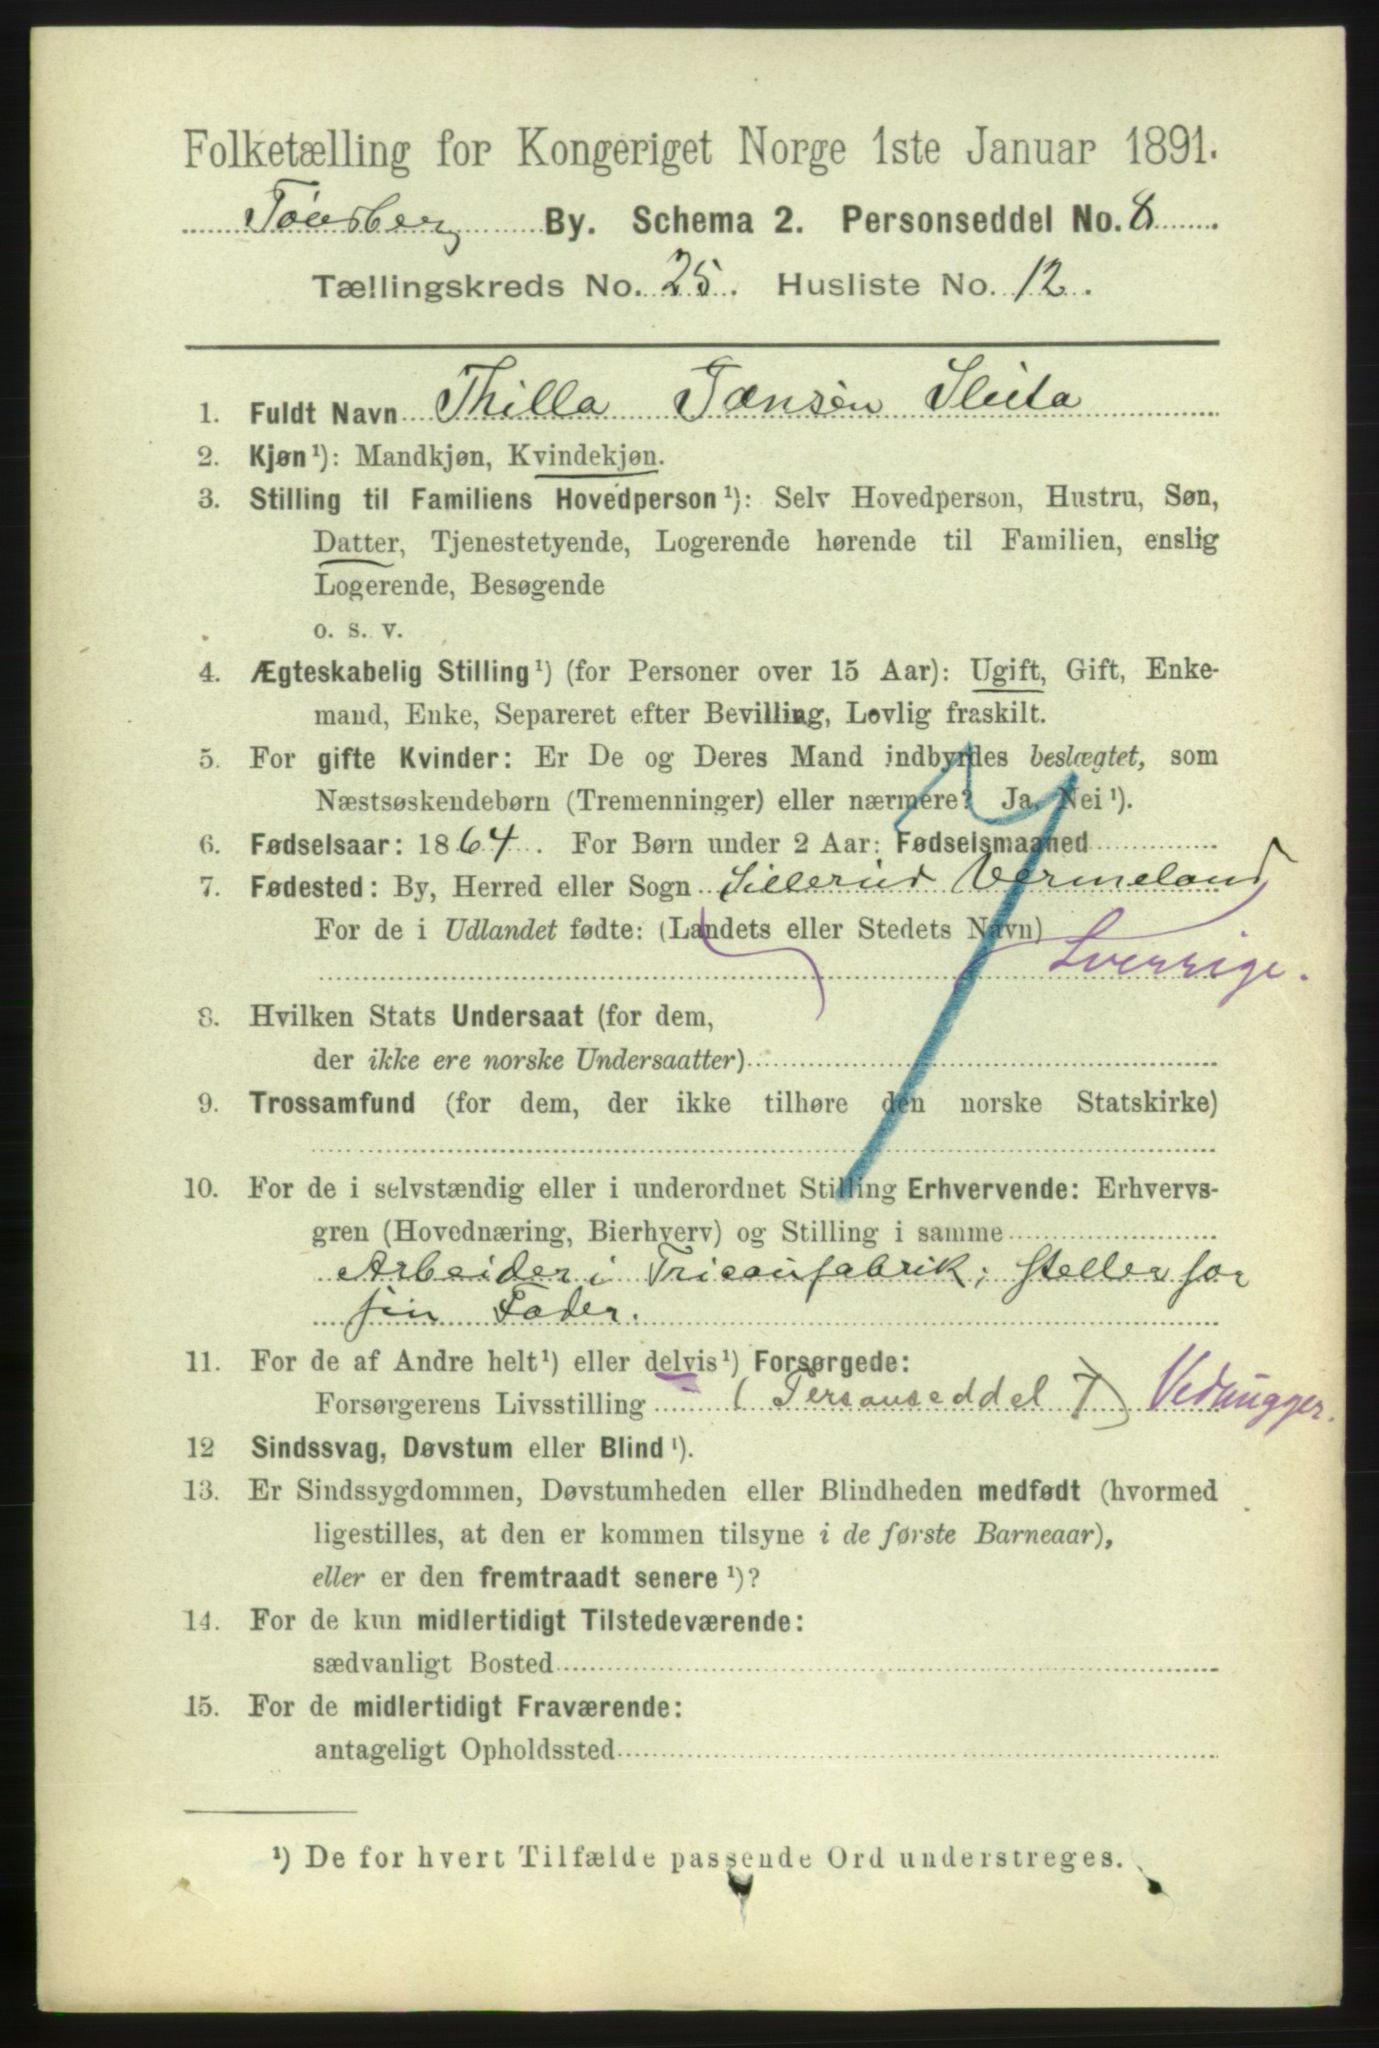 Folketælling for Kongeriget Norge 1ste Januar 1891.
Tønsberg By. Schema 2. Personseddel No. 8
Tællingskreds No. 25. Husliste No. 12.
1. Fuldt Navn Thilla Jansèn Sleita
2. Kjøn ¹): Mandkjøn, Kvindekjøn.
3. Stilling til Familiens Hovedperson ¹): Selv Hovedperson, Hustru, Søn,
Datter, Tjenestetyende, Logerende hørende til Familien, enslig
Logerende, Besøgende
o. s. v.
4. Ægteskabelig Stilling ¹) (for Personer over 15 Aar): Ugift, Gift, Enke-
mand, Enke, Separeret efter Bevilling, Lovlig fraskilt.
5. For gifte Kvinder: Er De og Deres Mand indbyrdes beslægtet, som
Næstsøskendebørn (Tremenninger) eller nærmere? Ja, Nei ¹).
6. Fødselsaar: 1864. For Børn under 2 Aar: Fødselsmaaned
7. Fødested: By, Herred eller Sogn Sillerud Vermeland
For de i Udlandet fødte: (Landets eller Stedets Navn)
Sverrige.
8. Hvilken Stats Undersaat (for dem,
der ikke ere norske Undersaatter)
9. Trossamfund (for dem, der ikke tilhøre den norske Statskirke)
10. For de i selvstændig eller i underordnet Stilling Erhvervende: Erhvervs-
gren (Hovednæring, Bierhverv) og Stilling i samme
Arbeider i Tricoufabrik; steller for
sin Fader.
11. For de af Andre helt ¹) eller delvis ¹) Forsørgede:
Forsørgerens Livsstilling (Personseddel 7) Vedhugger.
12 Sindssvag, Døvstum eller Blind ¹).
13. Er Sindssygdommen, Døvstumheden eller Blindheden medfødt (hvormed
ligestilles, at den er kommen tilsyne i de første Barneaar),
eller er den fremtraadt senere ¹)?
14. For de kun midlertidigt Tilstedeværende:
sædvanligt Bosted
15. For de midlertidigt Fraværende:
antageligt Opholdssted
¹) De for hvert Tilfælde passende Ord understreges.